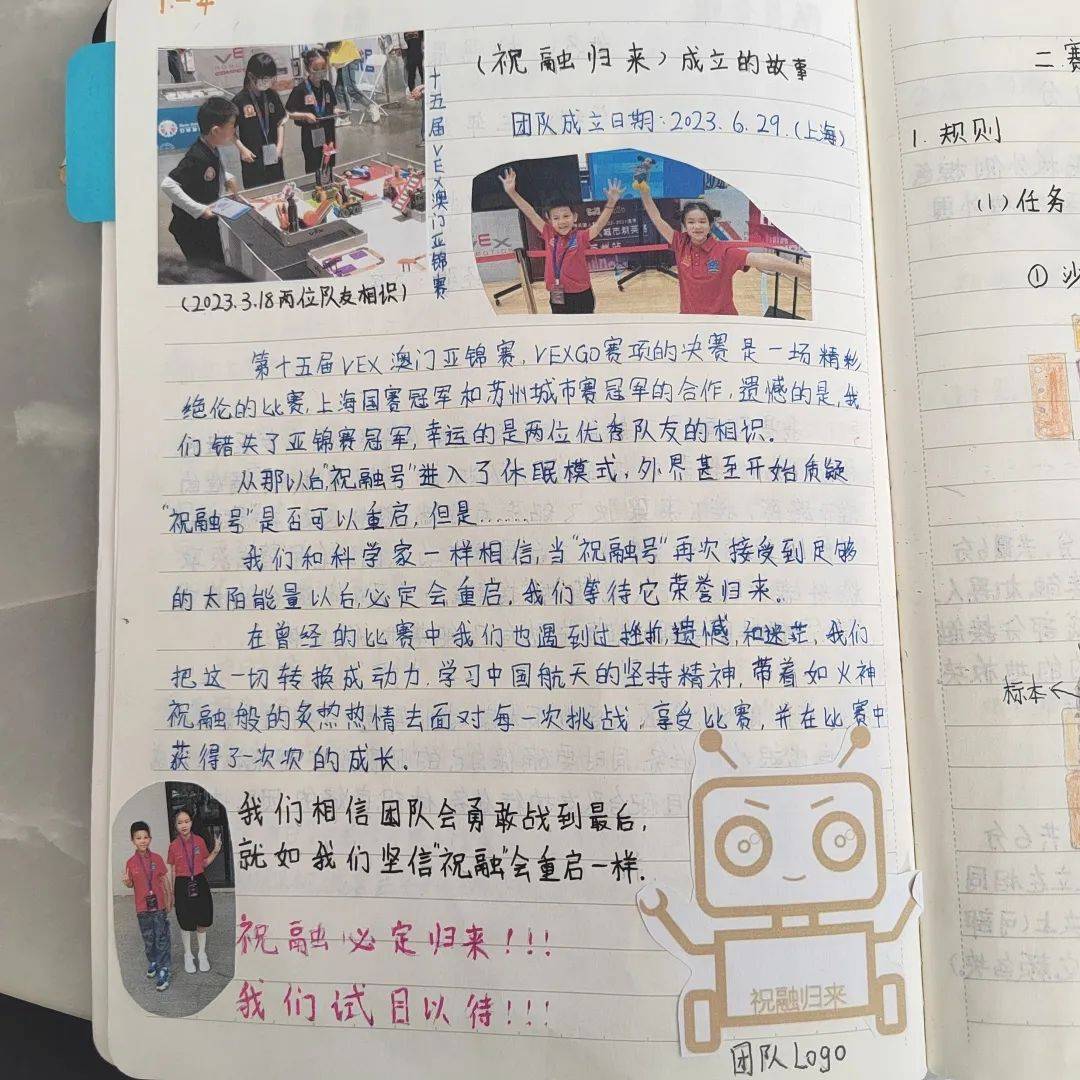 1.-4
(祝融归来)成立的故事
团队成立日期:2023.6.29.(上海)
十五届VEX澳门亚锦赛
(2023.3.18两位队友相识)
第十五届VEX澳门亚锦赛,VEXGO赛项的决赛是一场精彩
绝伦的比赛,上海国赛冠军和苏州城市赛冠军的合作,遗憾的是,我
们错失了亚锦赛冠军,幸运的是两位优秀队友的相识.
从那以后,"祝融号"进入了休眠模式,外界甚至开始质疑
"祝融号"是否可以重启,但是.......
我们和科学家一样相信,当"祝融号"再次接受到足够
的太阳能量以后,必定会重启,我们等待它荣誉归来.
在曾经的比赛中我们也遇到过挫折,遗憾,和迷茫,我们
把这一切转换成动力.学习中国航天的坚持精神,带着如火神
祝融般的炙热热情去面对每一次挑战,享受比赛,并在比赛中
获得了一次次的成长.
我们相信团队会勇敢战到最后,
就如我们坚信"祝融"会重启一样.
祝融必定归来!!!
我们试目以待!!!
祝融归来
团队Logo
二赛
1.规则
(1)任务
①沙
标本